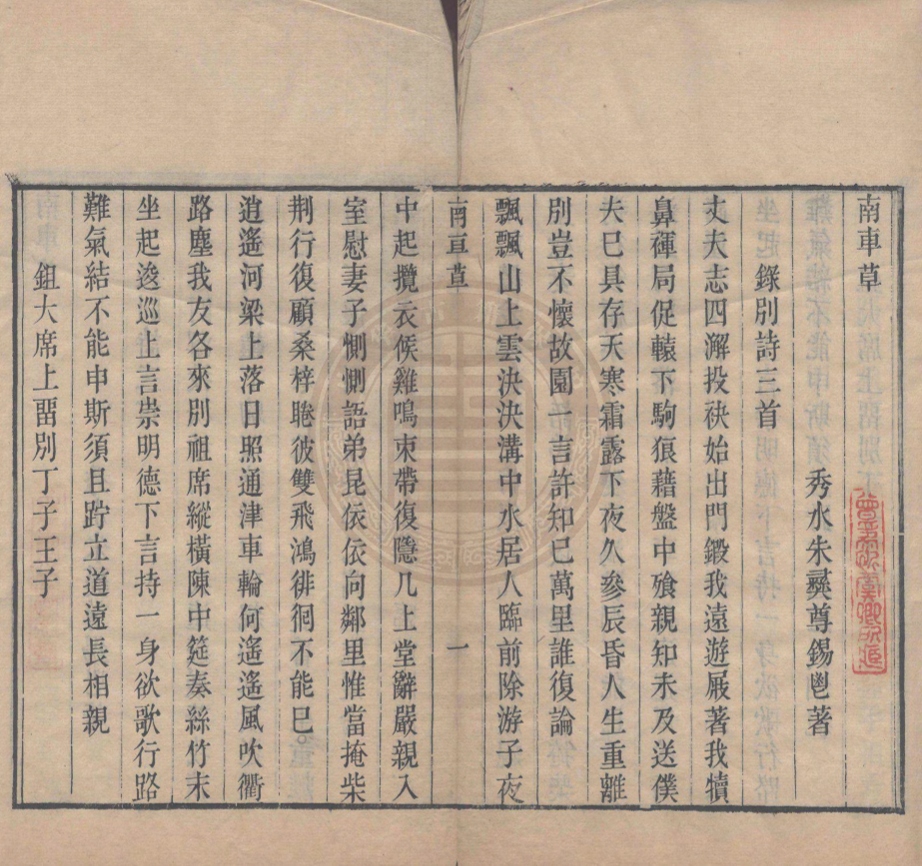 南車草
秀水朱彝尊錫鬯著
錄別詩三首
丈夫志四澥投袂始出門鍛我遠遊屐著我犢
鼻褌局促轅下駒狼藉盤中飧親知未及送僕
夫已具存天寒霜露下夜久參辰昏人生重離
別豈不懷故園一言許知已萬里誰復論
飄飄山上雲決決溝中水居人臨前除游子夜
南車草
一
中起攬衣候雞鳴束帶復隱几上堂辭嚴親入
室慰妻子惻惻語弟昆依依向鄰里惟當掩柴
荆行復顧桑梓聴彼雙飛鴻徘徊不能已
逍遙河梁上落日照通津車輪何遙遙風吹衢
路塵我友各來別祖席縱橫陳中筵奏絲竹末
坐起逡巡上言崇明德下言持一身欲歌行路
難氣結不能申斯須且踟立道遠長相親
鉏大席上畱別丁子王子